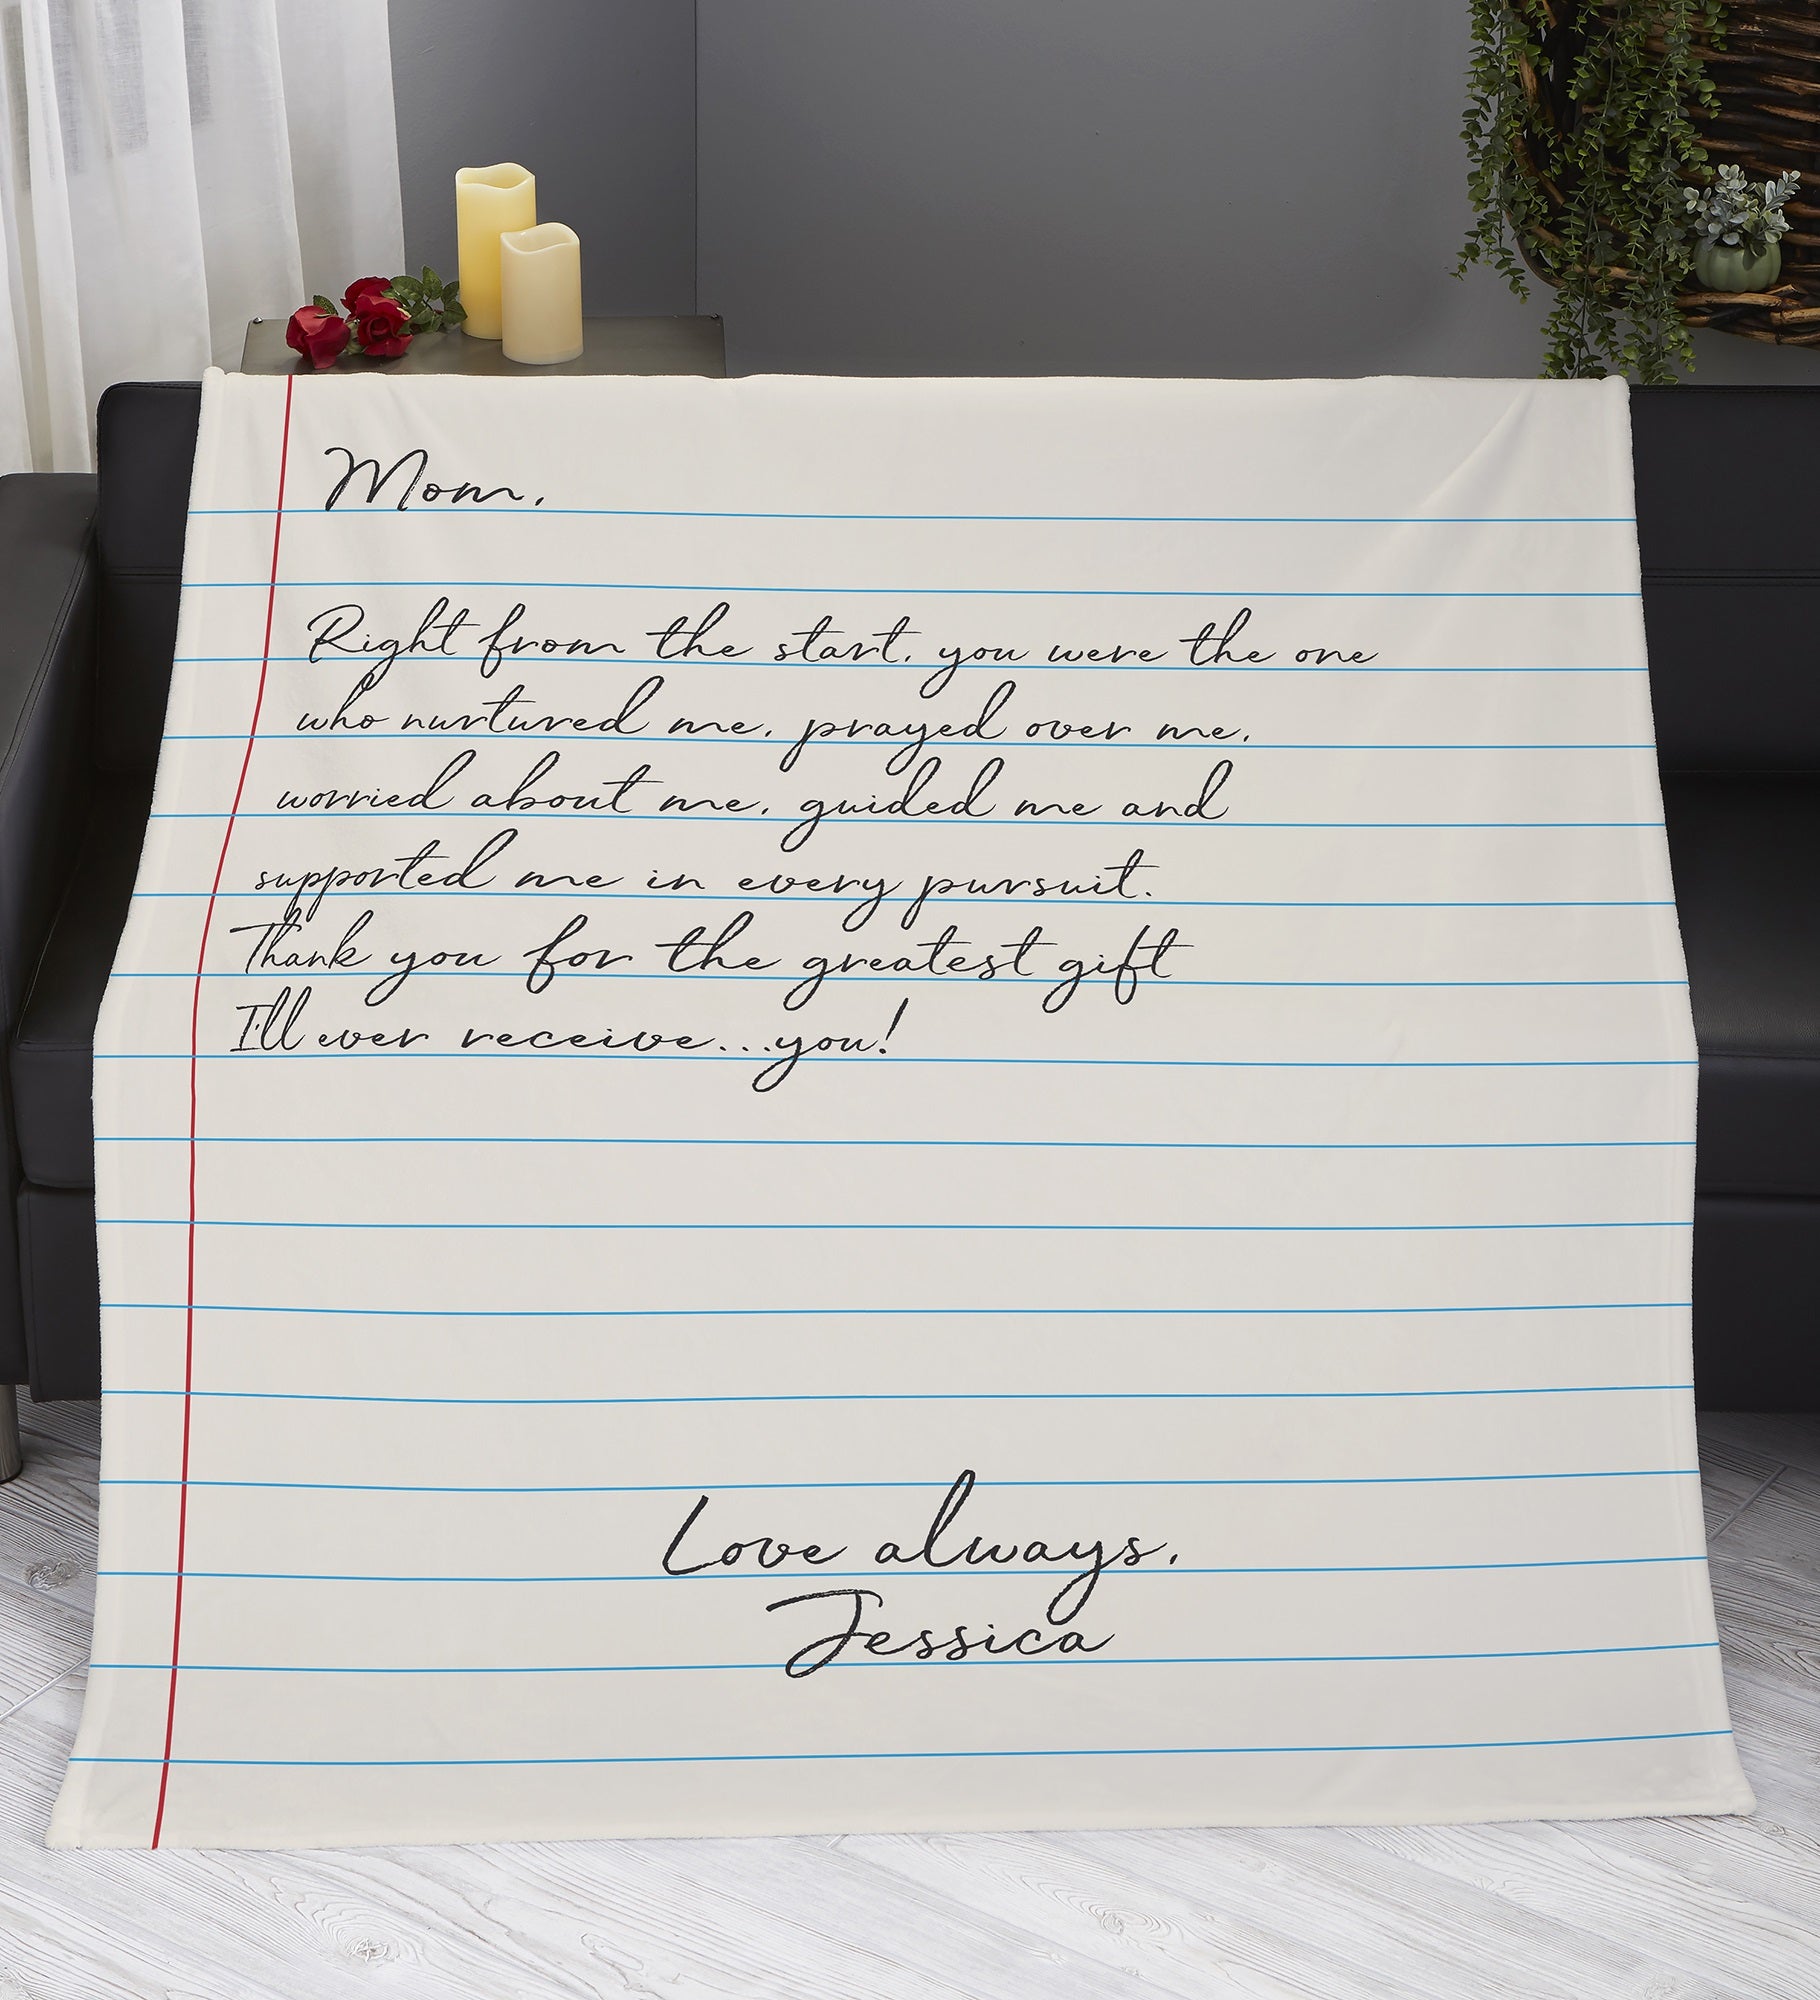 Mom,
Right from the start, you were the one
who nurtured me, prayed over me,
worried about me, guided me and
supported me in every pursuit.
Thank you for the greatest gift
I'll ever receive...you!
Love always,
Jessica